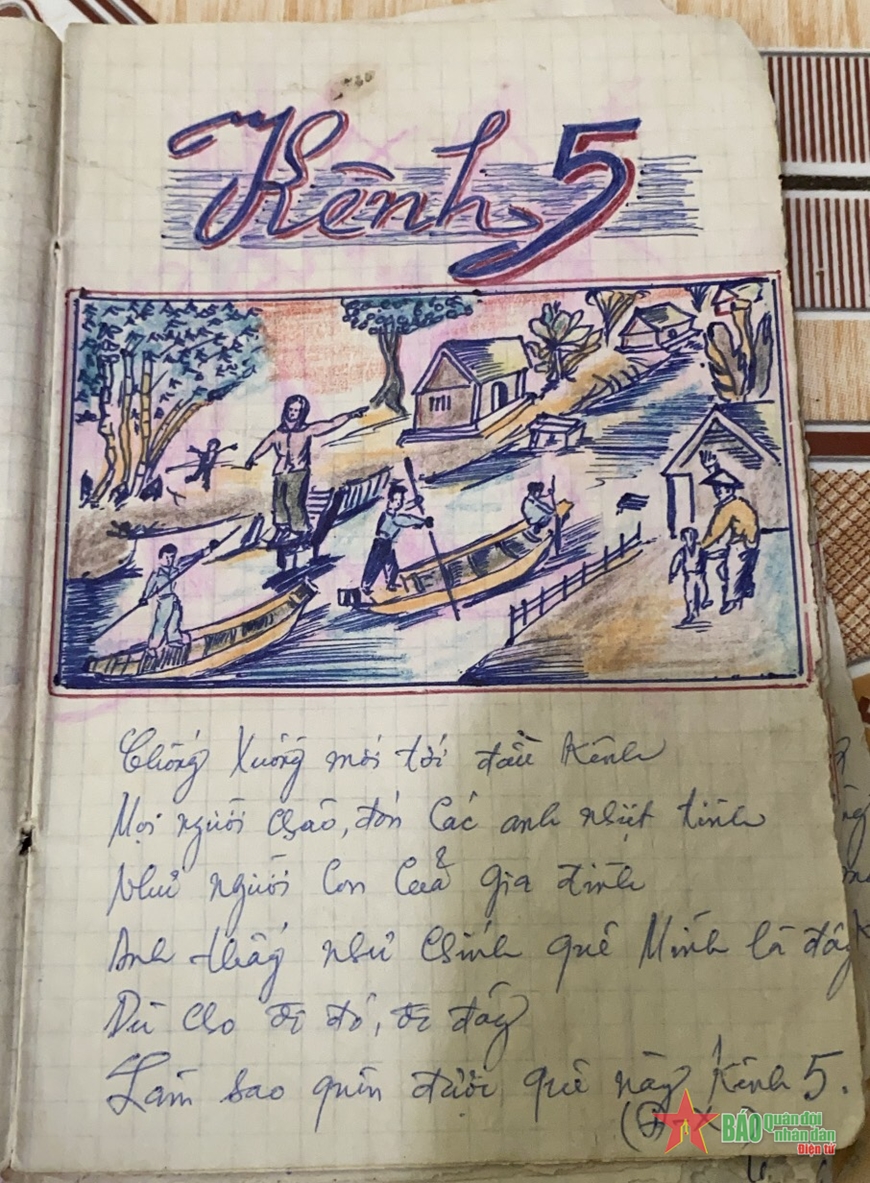 Kênh 5
Chống xuồng mới tới đầu Kênh
Mọi người chào, đón các anh nhiệt tình
Như người con của gia đình
Anh thấy như chính quê Mình là đây
Dù cho đi đó, đi đây
Làm sao quên được quê này Kênh 5.
BÁO quân đội
nhân dân
Điện tử